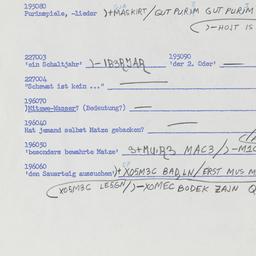 195080
Purimspiele, -lieder )+MASKIRT/GUT PURIM GUT PURIM
)-HOST IS
227003 195090
'ein Schaltjahr' )-IB3RJAR 'der 2. Oder' —
227004
"Schemat ist kein ..." —
196070
)Mitzwe-Wasser? (Bedeutung?) —
196040
Hat jemand selbst Matze gebacken? —
196050
'besonders bewahrte Matze' MAC3/)-MIC
196060
'den Sauerteig aussuchen' )+XOSM3C BADLN/ERST MUS M
XOSM3C LESEN/)-XOMEC BODEK ZAJN